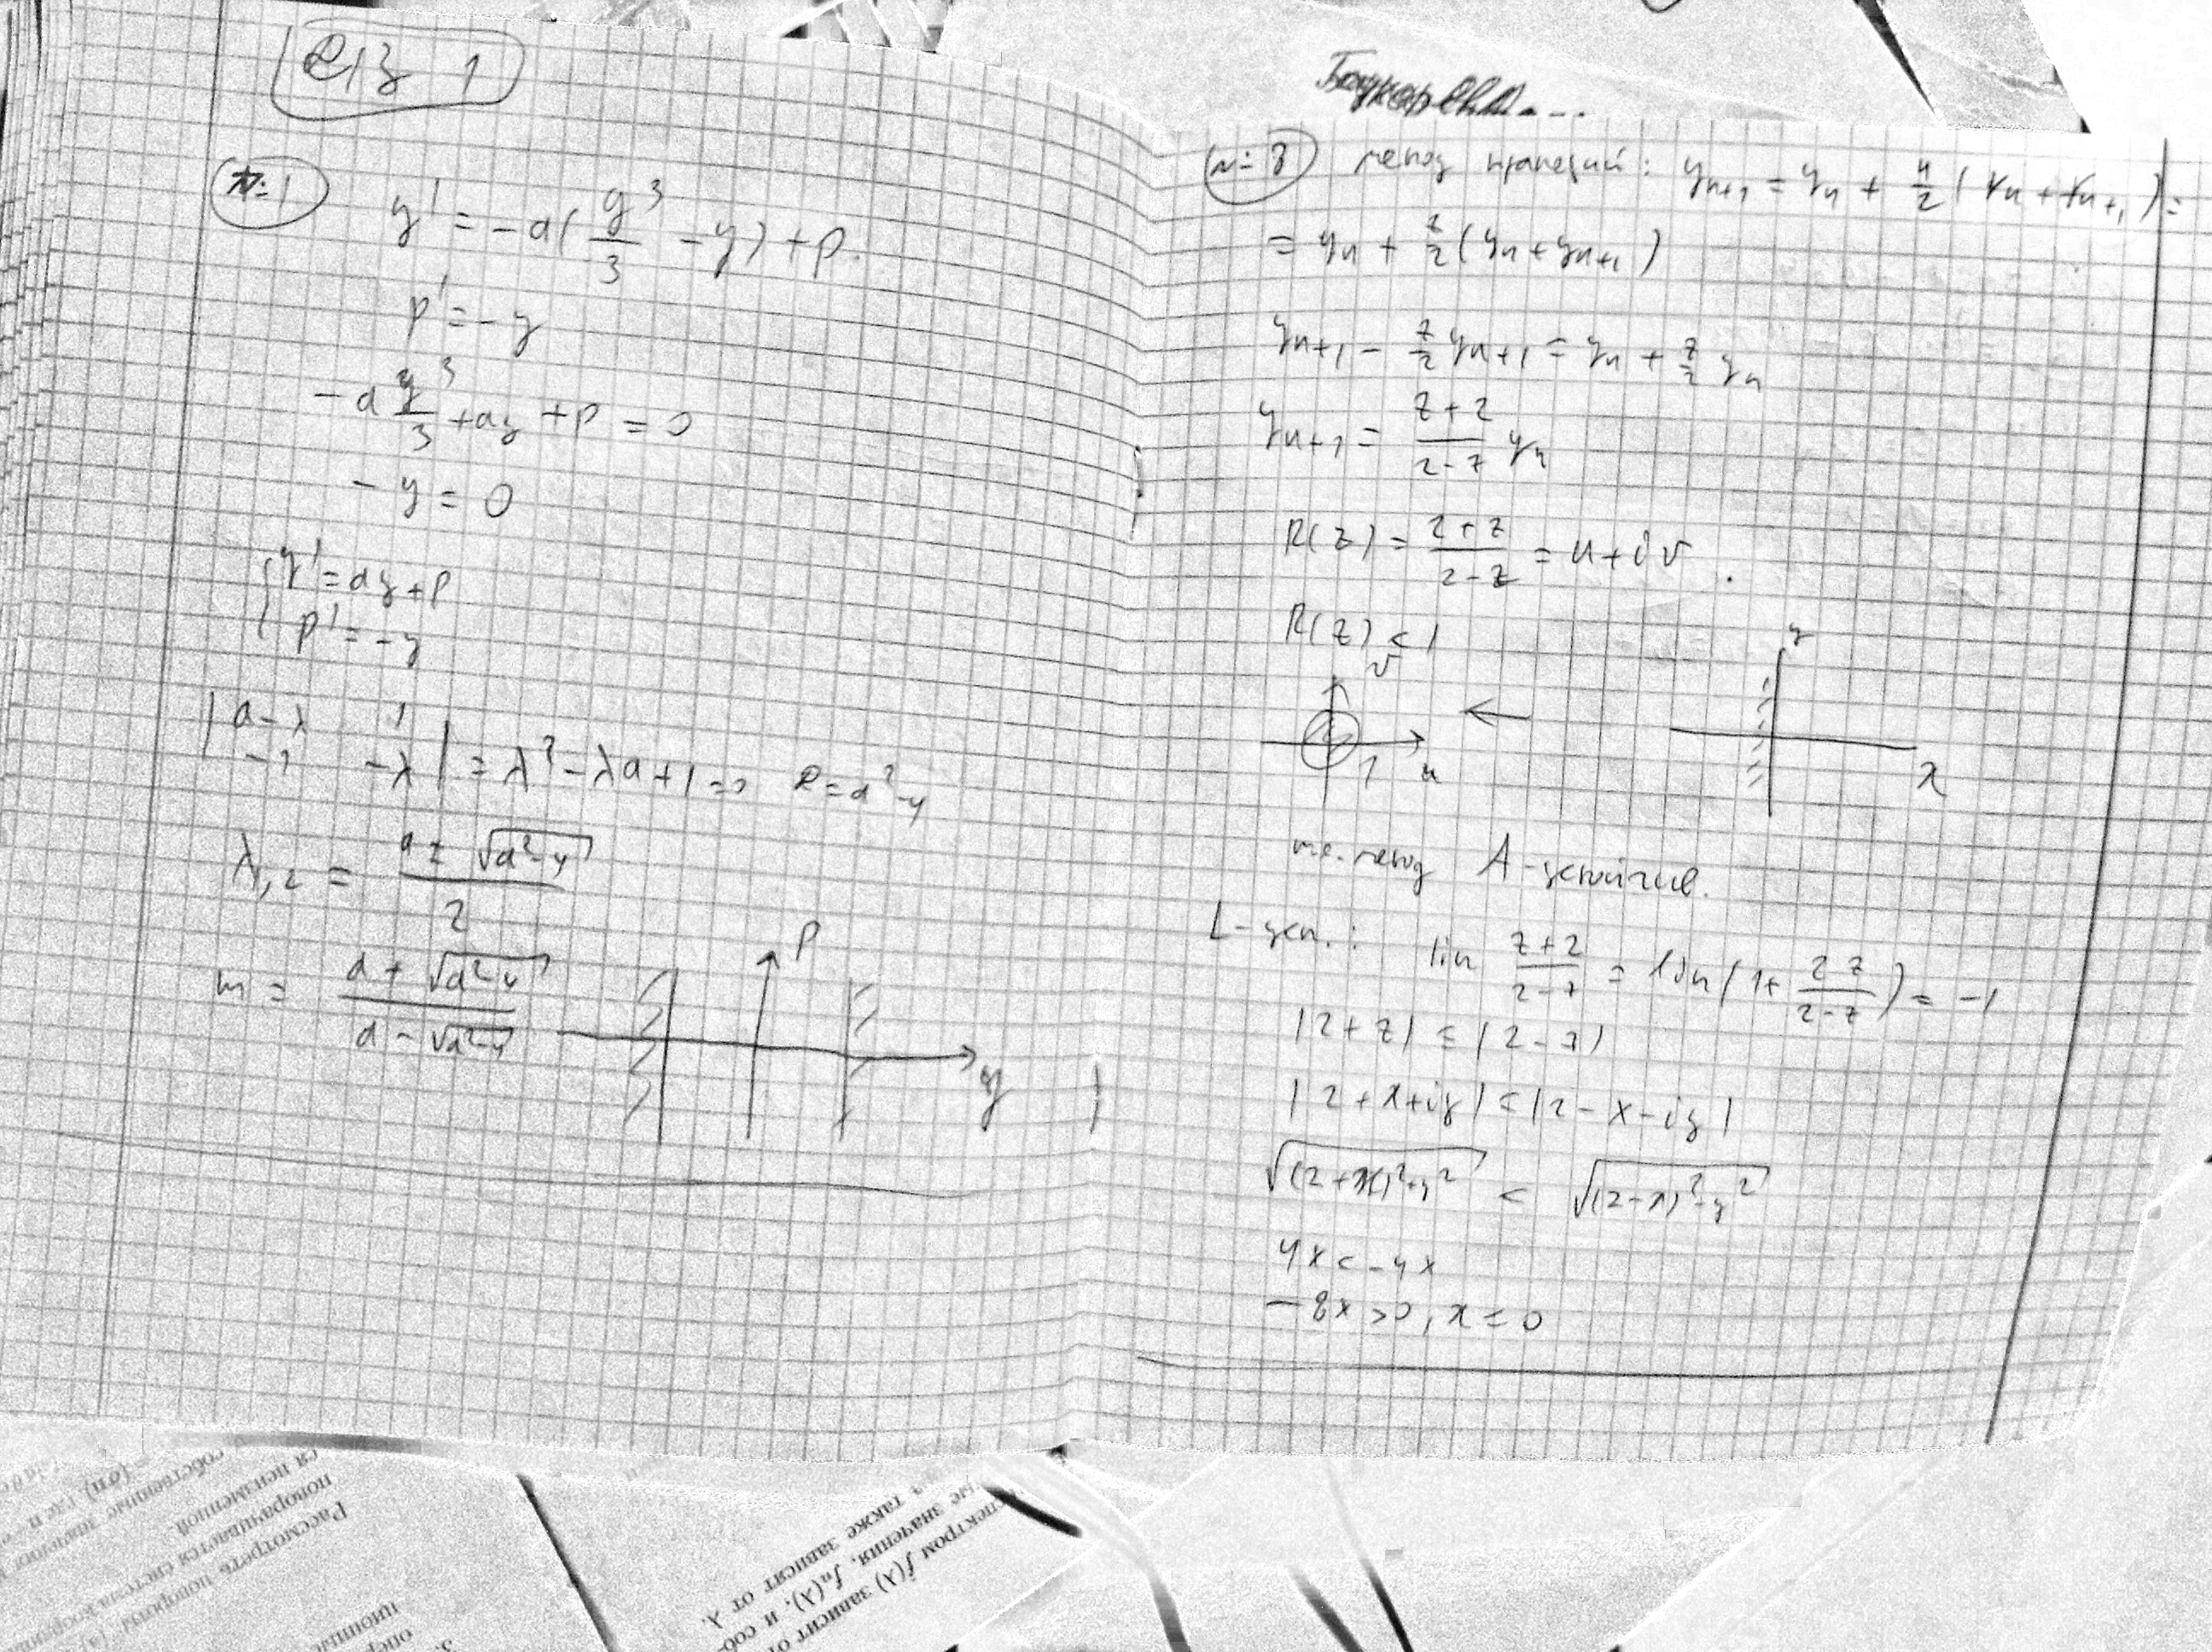 Д/З 1
№1
y' = -a(y³/3 - y) + p.
p' = -y
-a y³/3 + ay + p = 0
-y = 0
{ y' = ay + p
p' = -y
| a-λ 1
-1 -λ | = λ² - λa + 1 = 0 D = a² - 4
λ1,2 = (a ± √(a²-4)) / 2
m = (a + √(a²-4)) / (a - √(a²-4))
p
y
№8 метод трапеций: yn+1 = yn + h/2 (fn + fn+1) =
= yn + z/2 (yn + yn+1)
yn+1 - z/2 yn+1 = yn + z/2 yn
yn+1 = (z+2)/(2-z) yn
R(z) = (2+z)/(2-z) = u + iv.
R(z) < 1
v
1 u
y
x
т.е. метод A-устойчив.
L-уст.: lim (z+2)/(2-z) = lim(1 + 2z/(2-z)) = -1
|2+z| ≤ |2-z|
|2+x+iy| < |2-x-iy|
√((2+x)²+y²) < √((2-x)²-y²)
4x < -4x
-8x > 0, x < 0
Рассмотреть
поворачивается система
ся неизменной
собственные значения
пионные
спектром f(λ)
ые значения, fn(λ), и соб-
а также зависит от λ.
зависит от